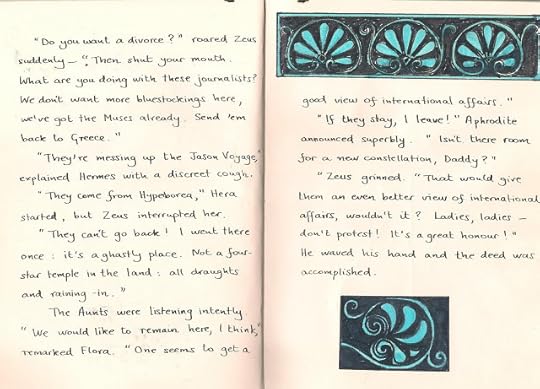 "Do you want a divorce?" roared Zeus
suddenly — "Then shut your mouth.
What are you doing with these journalists?
We don't want more bluestockings here,
we've got the Muses already. Send 'em
back to Greece."
"They're messing up the Jason Voyage,"
explained Hermes with a discreet cough.
"They come from Hypeborea," Hera
started, but Zeus interrupted her.
"They can't go back! I went there
once: it's a ghastly place. Not a four-
star temple in the land: all draughts
and raining-in."
The Aunts were listening intently.
"We would like to remain here, I think,"
remarked Flora. "One seems to get a
good view of international affairs."
"If they stay, I leave!" Aphrodite
announced superbly. "Isn't there room
for a new constellation, Daddy?"
"Zeus grinned. "That would give
them an even better view of international
affairs, wouldn't it? Ladies, ladies —
don't protest! It's a great honour!"
He waved his hand and the deed was
accomplished.